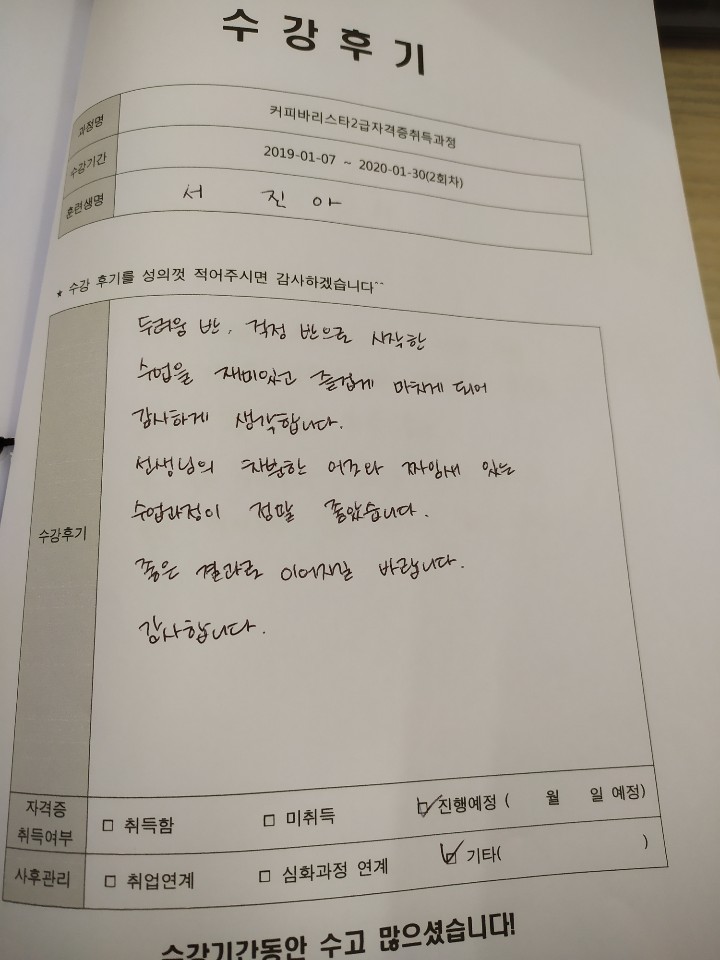 수강후기
과정명 커피바리스타2급자격증취득과정
수강기간 2019-01-07 ~ 2020-01-30(2회차)
훈련생명 서 진 아
★ 수강 후기를 성의껏 적어주시면 감사하겠습니다^^
수강후기
두려움 반, 걱정 반으로 시작한
수업을 재미있고 즐겁게 마치게 되어
감사하게 생각합니다.
선생님의 차분한 어조와 짜임새 있는
수업과정이 정말 좋았습니다.
좋은 결과로 이어지길 바랍니다.
감사합니다.
자격증
취득여부
□ 취득함 □ 미취득 ☑ 진행예정 ( 월 일 예정)
사후관리 □ 취업연계 □ 심화과정 연계 ☑ 기타( )
수강기간동안 수고 많으셨습니다!